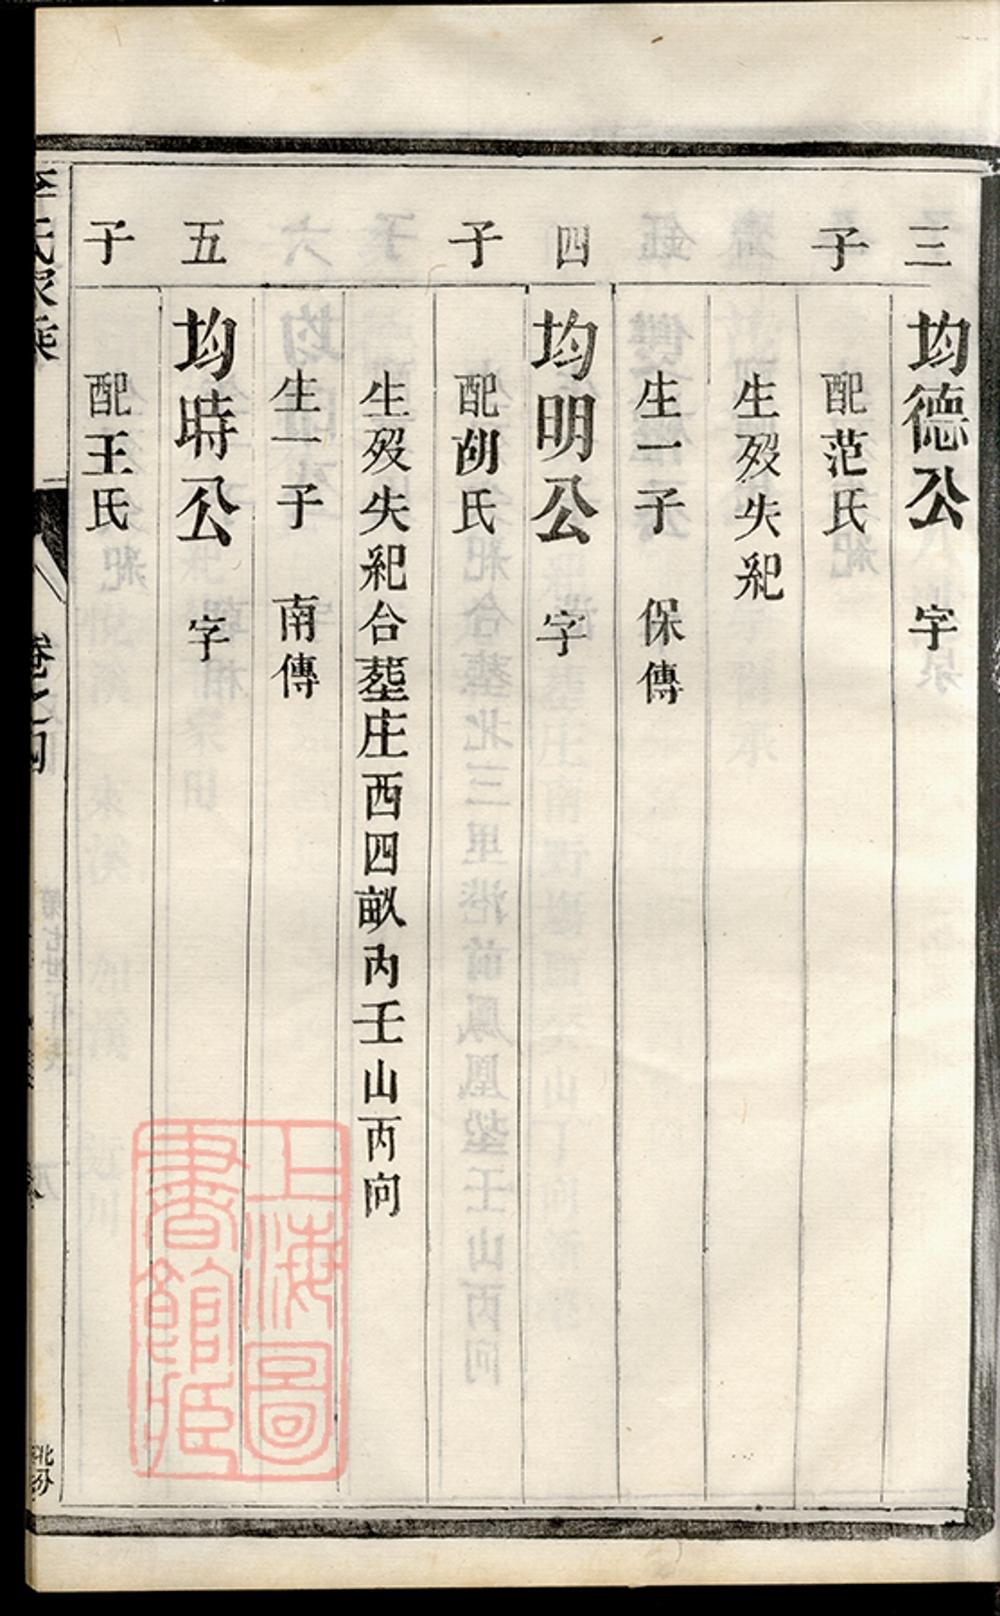 三 均德公 字
子 配范氏
生歿失紀
生一子 保傳
四 均明公 字
子 配胡氏
生歿失紀合墓庄西四畝內壬山丙向
生一子 南傳
五 均時公 字
子 配王氏
卷之四
上海圖書館藏